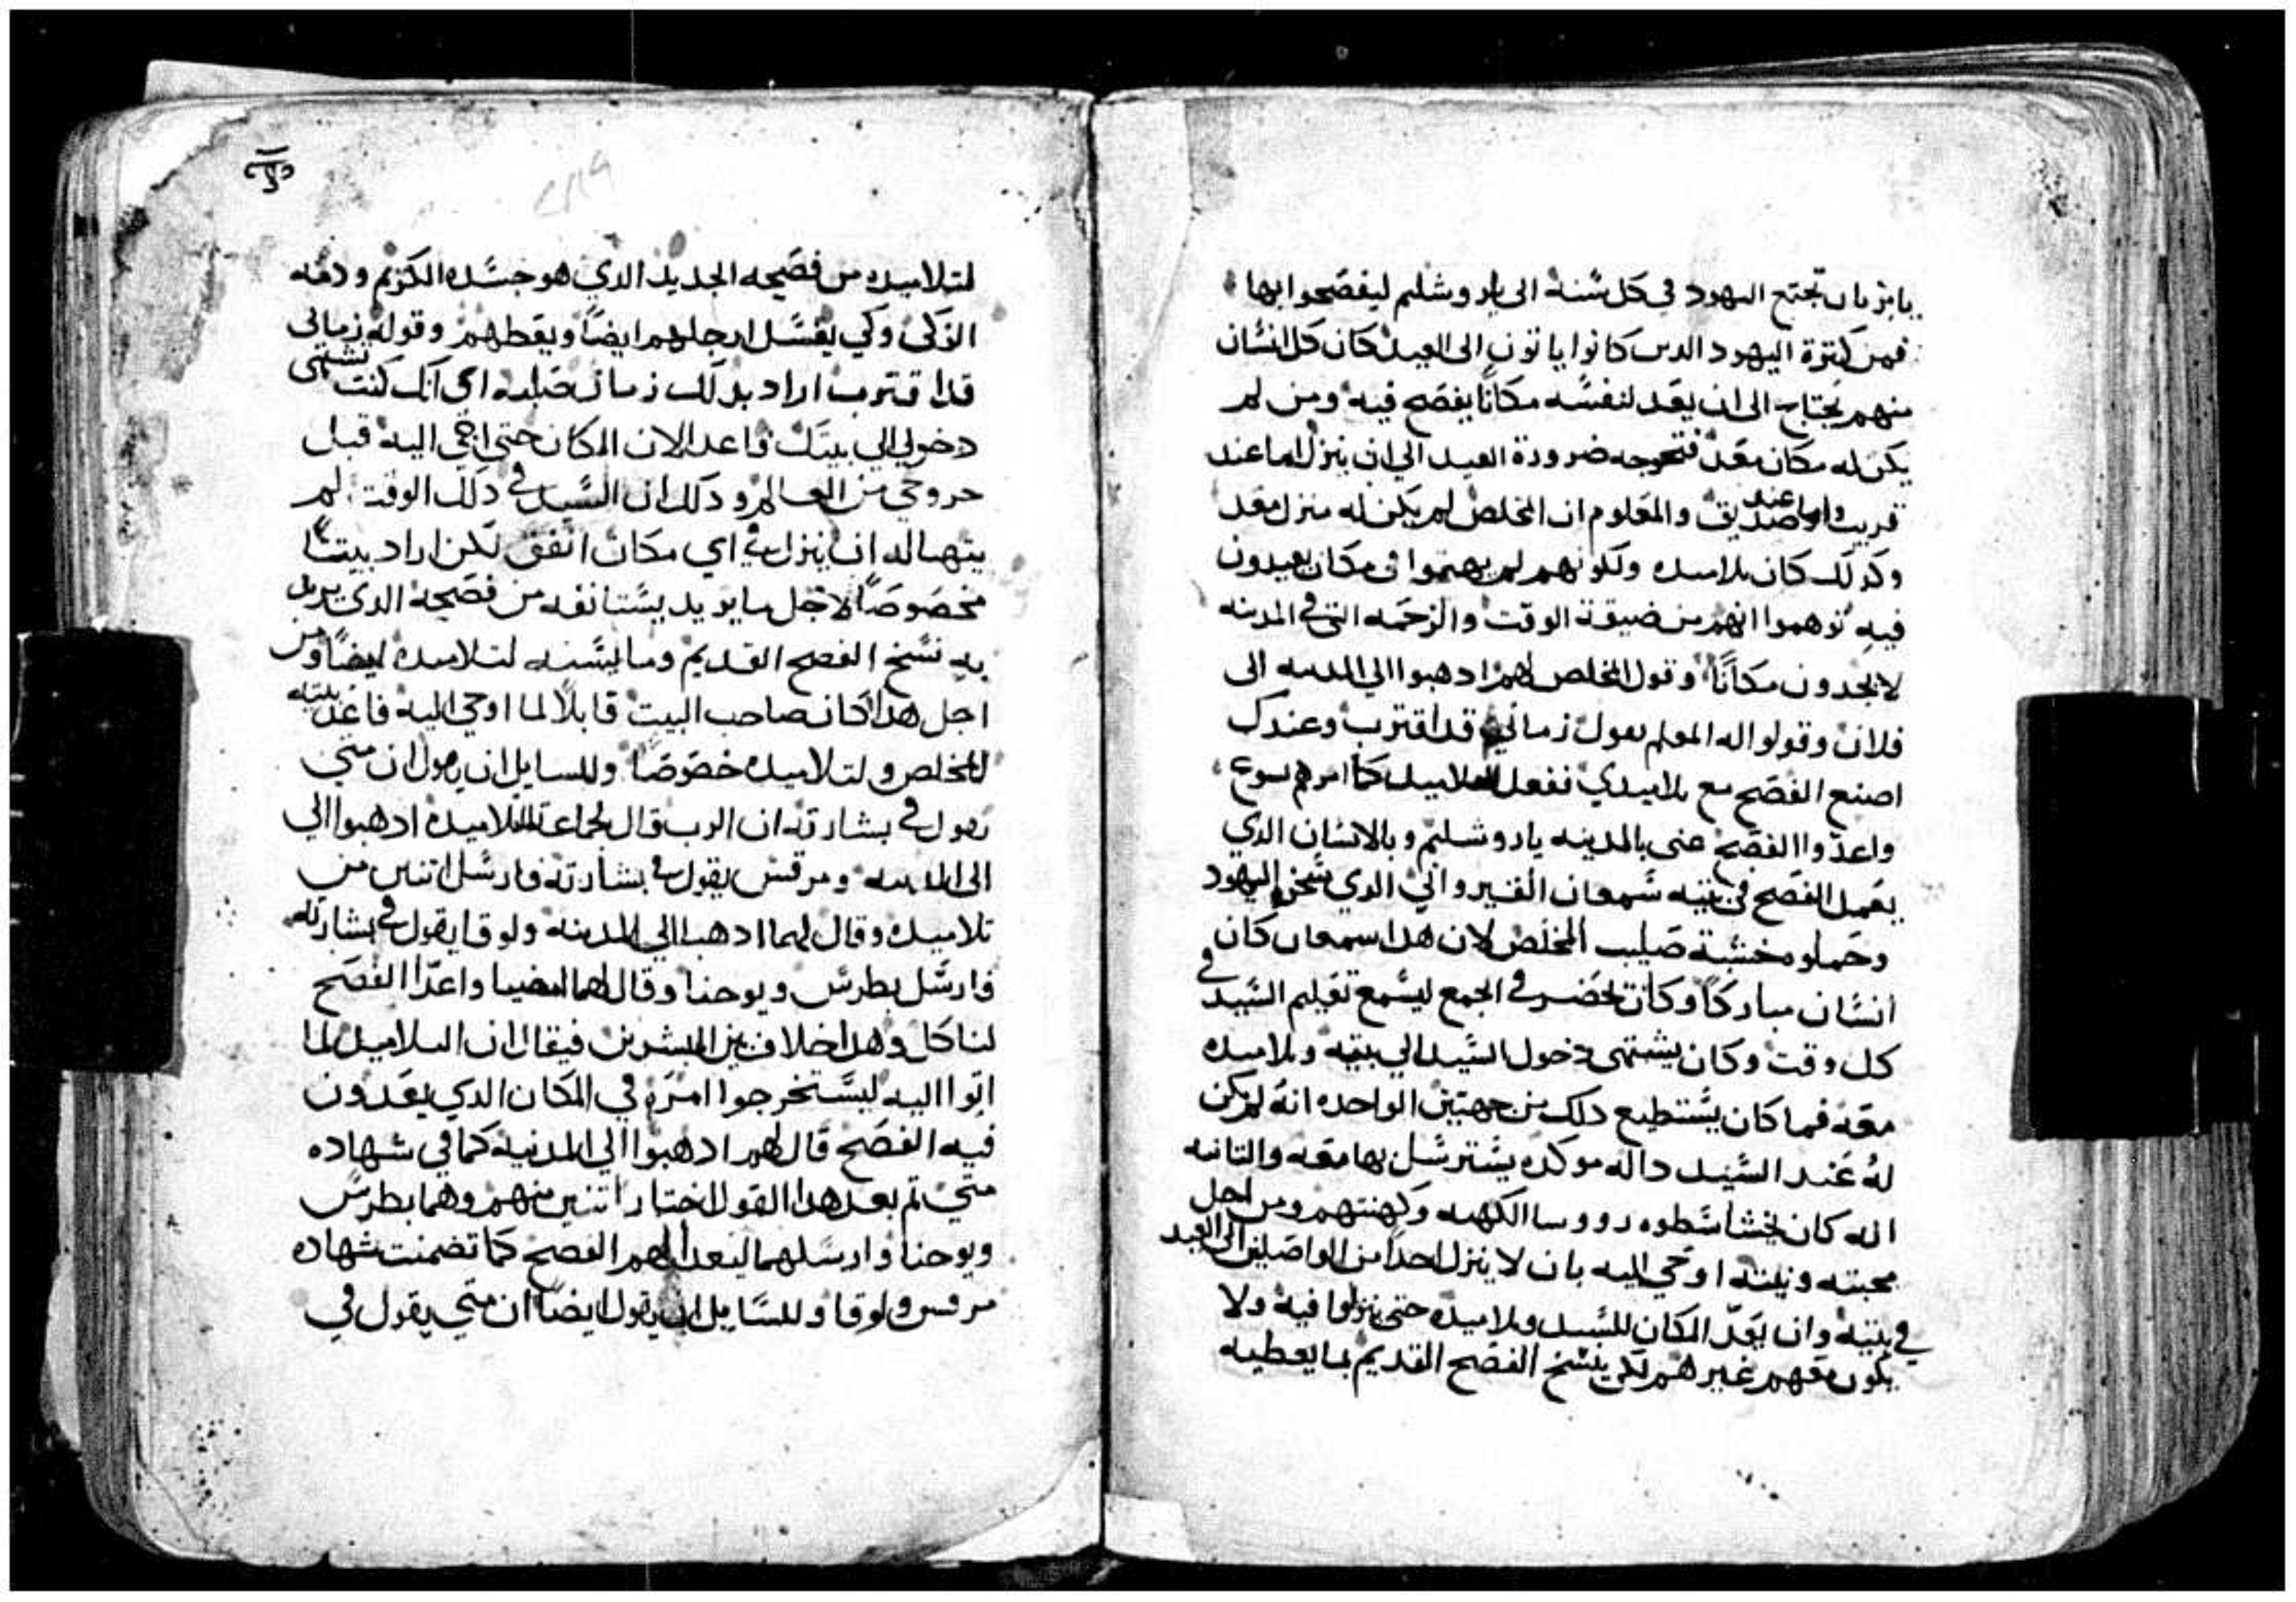 يامر بان تجتمع اليهود في كل سنة الى ياروشليم ليفصحوا بها
فمن كترة اليهود الدين كانوا ياتون الى العيد كان كل انسان
منهم يحتاج الى ان يعد لنفسه مكانًا يفصح فيه ومن لم
يكن له مكان معد فتحوجه ضرورة العيد الي ان ينزل اما عند
قريب واما عند صديق والمعلوم ان المخلص لم يكن له منزل معد
وكدلك كان تلاميده ولكونهم لم يهتموا في مكان يعيدون
فيه توهموا انهم من ضيقة الوقت والزحمه التي في المدينه
لا يجدون مكانًا وقول المخلص لهم ادهبوا الي المدينه الى
فلان وقولوا له المعلم يقول زماني قد اقترب وعندك
اصنع الفصح مع تلاميدي ففعل التلاميد كما امرهم يسوع
واعدوا الفصح عنى بالمدينه ياروشليم وبالانسان الدي
يعمل الفصح في بيته شمعان القيرواني الدي سخره اليهود
وحملوه خشبة صليب المخلص لان هدا سمعان كان
انسان مباركًا وكان يحضر في الجمع ليسمع تعليم السيد في
كل وقت وكان يشتهى دخول السيد الي بيته وتلاميده
معه فما كان يستطيع دلك من جهتين الواحده انه لم يكن
له عند السيد داله موكده يسترسل بها معه والتانيه
انه كان يخشا سطوه رووسا الكهنه وكهنتهم ومن اجل
محبته ونيته اوحي اليه بان لا ينزل احدًا من الواصلين الى العيد
في بيته وان يعد المكان للسيد وتلاميده حتى ينزلوا فيه ولا
يكون معهم غيرهم لكي ينسخ الفصح القديم بما يعطيه
لتلاميده من فصحه الجديد الدي هو جسده الكريم ودمه
الزكى وكي يغسل ارجلهم ايضًا ويعظهم وقوله زمانى
قد اقترب اراد بدلك زمان صلبه اي انك كنت تشتهى
دخولي الي بيتك فاعد الان المكان حتى اجي اليه قبل
خروجي من العالم ودلك ان السيد في دلك الوقت لم
يتهيا له ان ينزل في اي مكان اتفق لكن اراد بيتًا
مخصوصًا لاجل ما يريد يستانفه من فصحه الدي يريد
به نسخ الفصح القديم وما يسنه لتلاميده ايضًا ومن
اجل هدا كان صاحب البيت قابلًا لما اوحي اليه فاعد بيته
للمخلص ولتلاميده خصوصًا وللسايل ان يقول ان متي
يقول في بشارته ان الرب قال لجماعة التلاميده ادهبوا الي
الى المدينه ومرقس يقول في بشارته فارسل اتنين من
تلاميده وقال لهما ادهبا الي المدينه ولوقا يقول في بشارته
فارسل بطرس ويوحنا وقال لهما امضيا واعدا الفصح
لناكل وهدا خلاف بين المبشرين فيقال ان التلاميد لما
اتوا اليه ليستخرجوا امره في المكان الدي يعدون
فيه الفصح قال لهم ادهبوا الي المدنيه كما في شهاده
متي تم بعد هدا القول اختار اتنين منهم وهما بطرس
ويوحنا وارسلهما ليعدا لهم الفصح كما تضمنت شهاده
مرقس ولوقا وللسايل ان يقول ايضًا ان متي يقول في